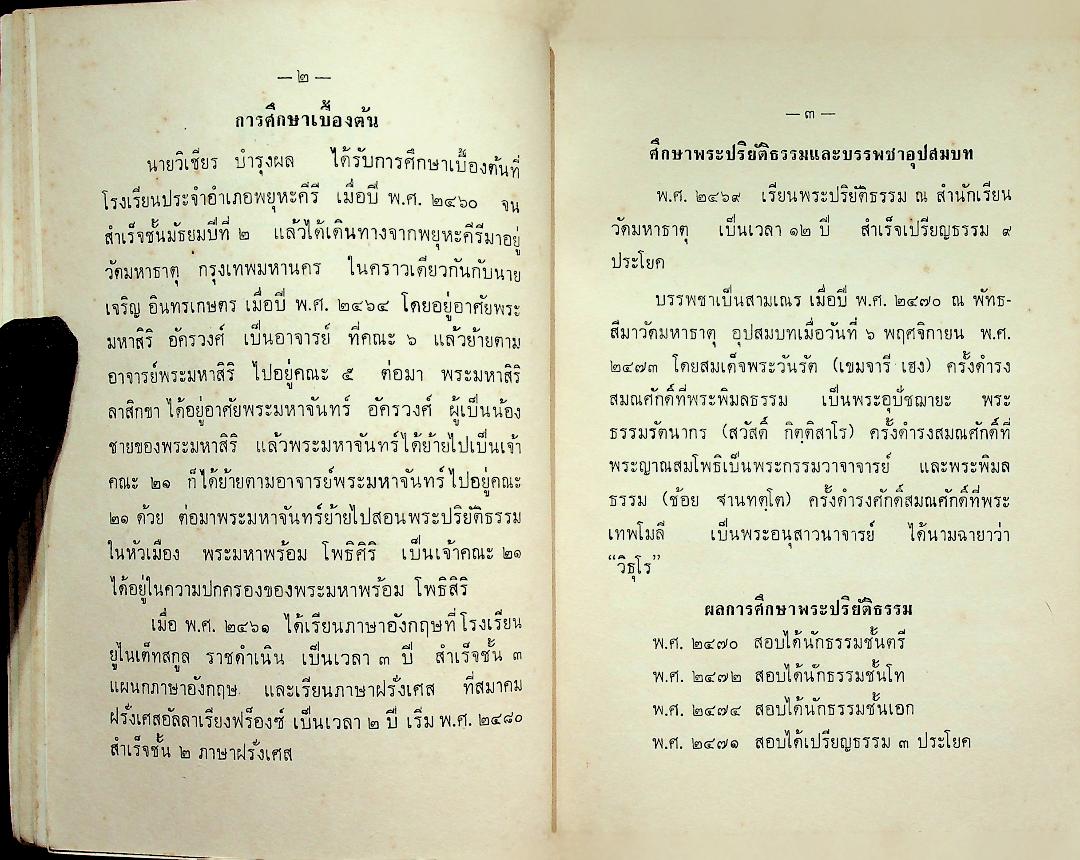 — ๒ —
การศึกษาเบื้องต้น
นายวิเชียร บำรุงผล ได้รับการศึกษาเบื้องต้นที่
โรงเรียนประจำอำเภอพยุหะคีรี เมื่อปี พ.ศ. ๒๔๖๐ จน
สำเร็จชั้นมัธยมปีที่ ๒ แล้วได้เดินทางจากพยุหะคีรีมาอยู่
วัดมหาธาตุ กรุงเทพมหานคร ในคราวเดียวกันกับนาย
เจริญ อินทรเกษตร เมื่อปี พ.ศ. ๒๔๖๔ โดยอยู่อาศัยพระ
มหาสิริ อัครวงศ์ เป็นอาจารย์ ที่คณะ ๖ แล้วย้ายตาม
อาจารย์พระมหาสิริ ไปอยู่คณะ ๕ ต่อมา พระมหาสิริ
ลาสิกขา ได้อยู่อาศัยพระมหาจันทร์ อัครวงศ์ ผู้เป็นน้อง
ชายของพระมหาสิริ แล้วพระมหาจันทร์ได้ย้ายไปเป็นเจ้า
คณะ ๒๑ ก็ได้ย้ายตามอาจารย์พระมหาจันทร์ไปอยู่คณะ
๒๑ ด้วย ต่อมาพระมหาจันทร์ย้ายไปสอนพระปริยัติธรรม
ในหัวเมือง พระมหาพร้อม โพธิศิริ เป็นเจ้าคณะ ๒๑
ได้อยู่ในความปกครองของพระมหาพร้อม โพธิสิริ
เมื่อ พ.ศ. ๒๔๖๑ ได้เรียนภาษาอังกฤษที่โรงเรียน
ยูไนเต็ทสกูล ราชดำเนิน เป็นเวลา ๓ ปี สำเร็จชั้น ๓
แผนกภาษาอังกฤษ และเรียนภาษาฝรั่งเศส ที่สมาคม
ฝรั่งเศสอัลลาเรียงฟร็องซ์ เป็นเวลา ๒ ปี เริ่ม พ.ศ. ๒๔๘๐
สำเร็จชั้น ๒ ภาษาฝรั่งเศส
— ๓ —
ศึกษาพระปริยัติธรรมและบรรพชาอุปสมบท
พ.ศ. ๒๔๖๙ เรียนพระปริยัติธรรม ณ สำนักเรียน
วัดมหาธาตุ เป็นเวลา ๑๒ ปี สำเร็จเปรียญธรรม ๙
ประโยค
บรรพชาเป็นสามเณร เมื่อปี พ.ศ. ๒๔๗๐ ณ พัทธ-
สีมาวัดมหาธาตุ อุปสมบทเมื่อวันที่ ๖ พฤศจิกายน พ.ศ.
๒๔๗๓ โดยสมเด็จพระวันรัต (เขมจารี เฮง) ครั้งดำรง
สมณศักดิ์ที่พระพิมลธรรม เป็นพระอุปัชฌายะ พระ
ธรรมรัตนากร (สวัสดิ์ กิตฺติสาโร) ครั้งดำรงสมณศักดิ์ที่
พระญาณสมโพธิเป็นพระกรรมวาจาจารย์ และพระพิมล
ธรรม (ช้อย ฐานทตฺโต) ครั้งดำรงศักดิ์สมณศักดิ์ที่พระ
เทพโมลี เป็นพระอนุสาวนาจารย์ ได้นามฉายาว่า
“วิธุโร”
ผลการศึกษาพระปริยัติธรรม
พ.ศ. ๒๔๗๐ สอบได้นักธรรมชั้นตรี
พ.ศ. ๒๔๗๒ สอบได้นักธรรมชั้นโท
พ.ศ. ๒๔๗๔ สอบได้นักธรรมชั้นเอก
พ.ศ. ๒๔๗๑ สอบได้เปรียญธรรม ๓ ประโยค